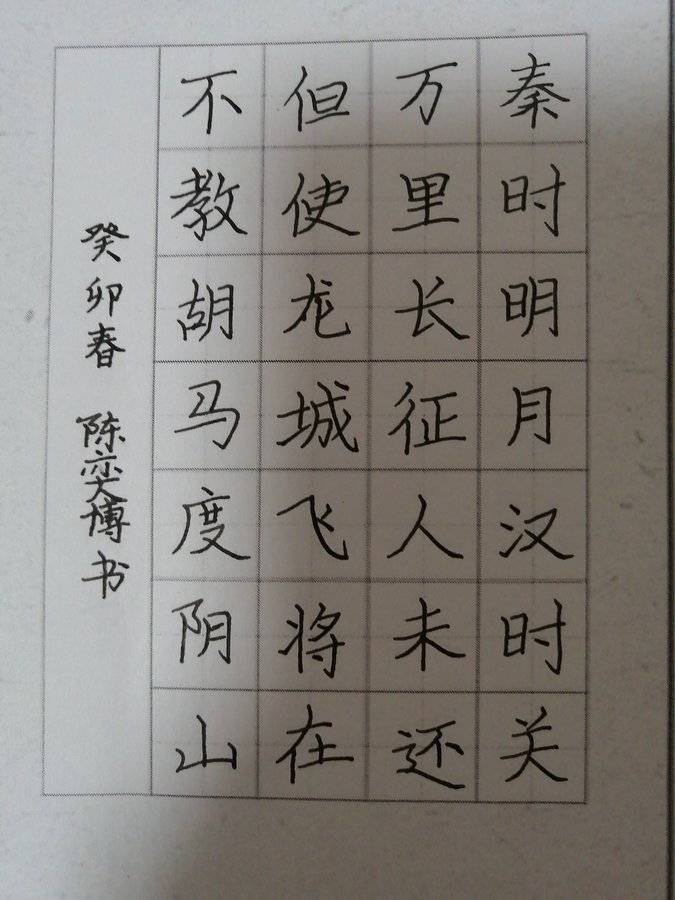 秦时明月汉时关
万里长征人未还
但使龙城飞将在
不教胡马度阴山
癸卯春 陈奕博书